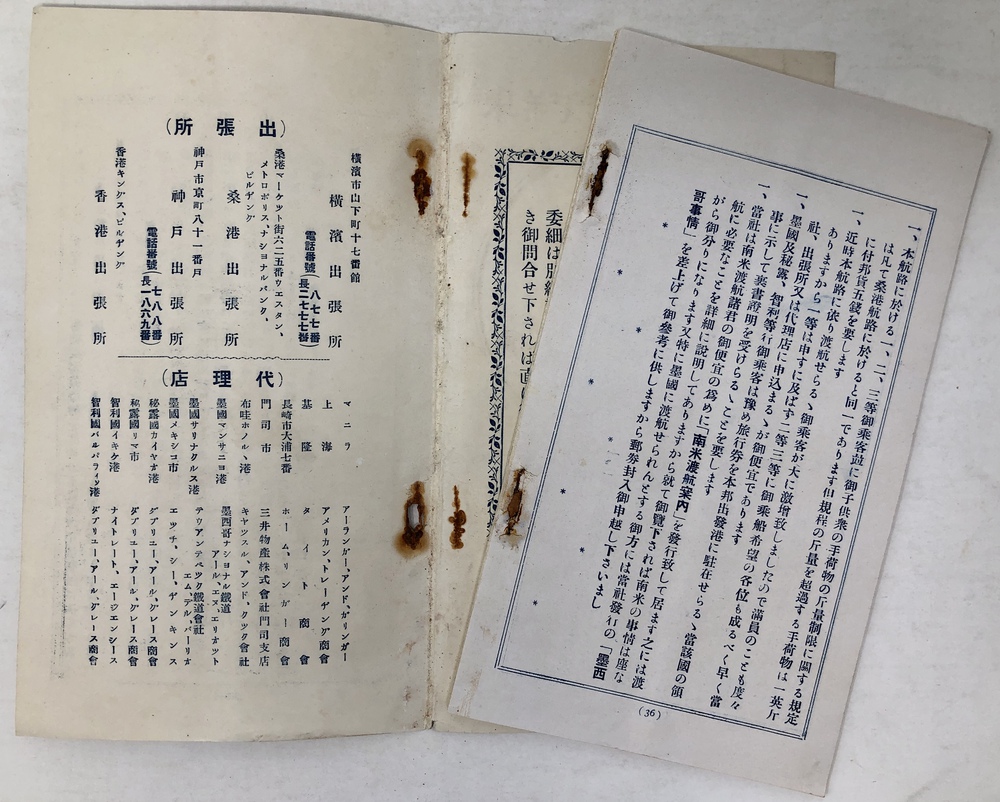 一、本航路に於ける一、二、三等御乘客竝に御子供衆の手荷物の斤量制限に關する規定
は凡て桑港航路に於けると同一であります但規程の斤量を超過する手荷物は一英斤
に付邦貨五錢を要します
一、近時本航路に依り渡航せらるゝ御乘客が大に激增致しましたので滿員のことも度々
ありますから一等は申すに及ばず二等三等に御乘船希望の各位も成るべく早く當
社、出張所又は代理店に申込まるゝが御便宜であります
一、墨國及秘露、智利等行御乘客は豫め旅行券を本邦出發港に駐在せらるゝ當該國の領
事に示して裏書證明を受けらるゝことを要します
一、當社は南米渡航諸君の御便宜の爲めに「南米渡航案內」を發行致して居ます之には渡
航に必要なことを詳細に說明してありますから就て御覽下されば南米の事情は座な
がら御分りになります又特に墨國に渡航せられんとする御方には當社發行の「墨西
哥事情」を差上げて御參考に供しますから郵券封入御申越し下さいまし
* * * * * * * *
(36)
委細は別紙
き御問合せ下されは直に
(出張所)
橫濱市山下町十七番館
橫濱出張所
電話番號(八七七番 長二七七七番)
桑港マーケツト街六二五番ウエスタン、
メトロポリス、ナシヨナルバンク、
ビルヂング
桑港出張所
神戶市京町八十一番戶
神戶出張所
電話番號(七八八番 長一八六九番)
香港キングス、ビルヂング
香港出張所
(代理店)
マニラ アーランガー、アンド、ガリンガー
上海 アメリカン、トレーヂング商會
基隆 タイト商會
長崎市大浦七番 ホーム、リンガー商會
門司市 三井物產株式會社門司支店
布哇ホノルヽ港 キヤツスル、アンド、クツク會社
墨國マンサニヨ港 墨西哥ナシヨナル鐵道
アール、エヌ、エリオツト
墨國サリナクルス港 テワアンテペツク鐵道會社
エム、デル、バーリオ
墨國メキシコ市 エツチ、シー、ヂンキンス
秘露國カイヤオ港 ダブリユー、アール、グレース商會
秘露國リマ市 ダブリユー、アール、グレース商會
智利國イキケ港 ナイトレート、エーヂエンシース
智利國バルパライソ港 ダブリユー、アール、グレース商會